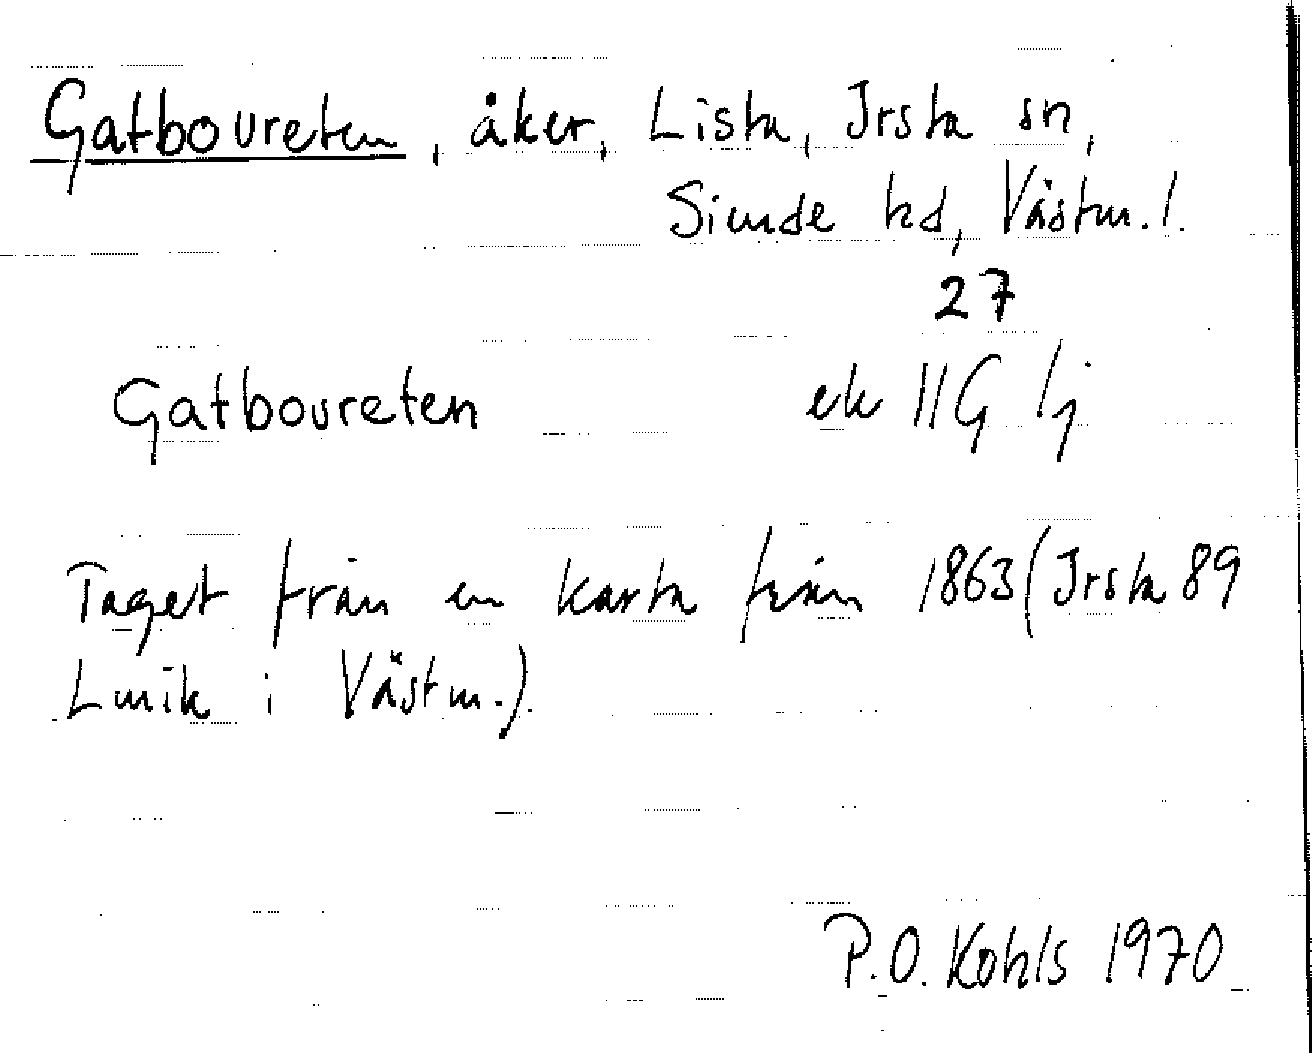 Gatboureten, åker, Lista, Irsta sn,
Siende hd, Västm. l.
27
Gatboureten ek 11G 1j
Taget från en karta från 1863 (Irsta 89
Lmik i Västm.)
P.O. Kohls 1970